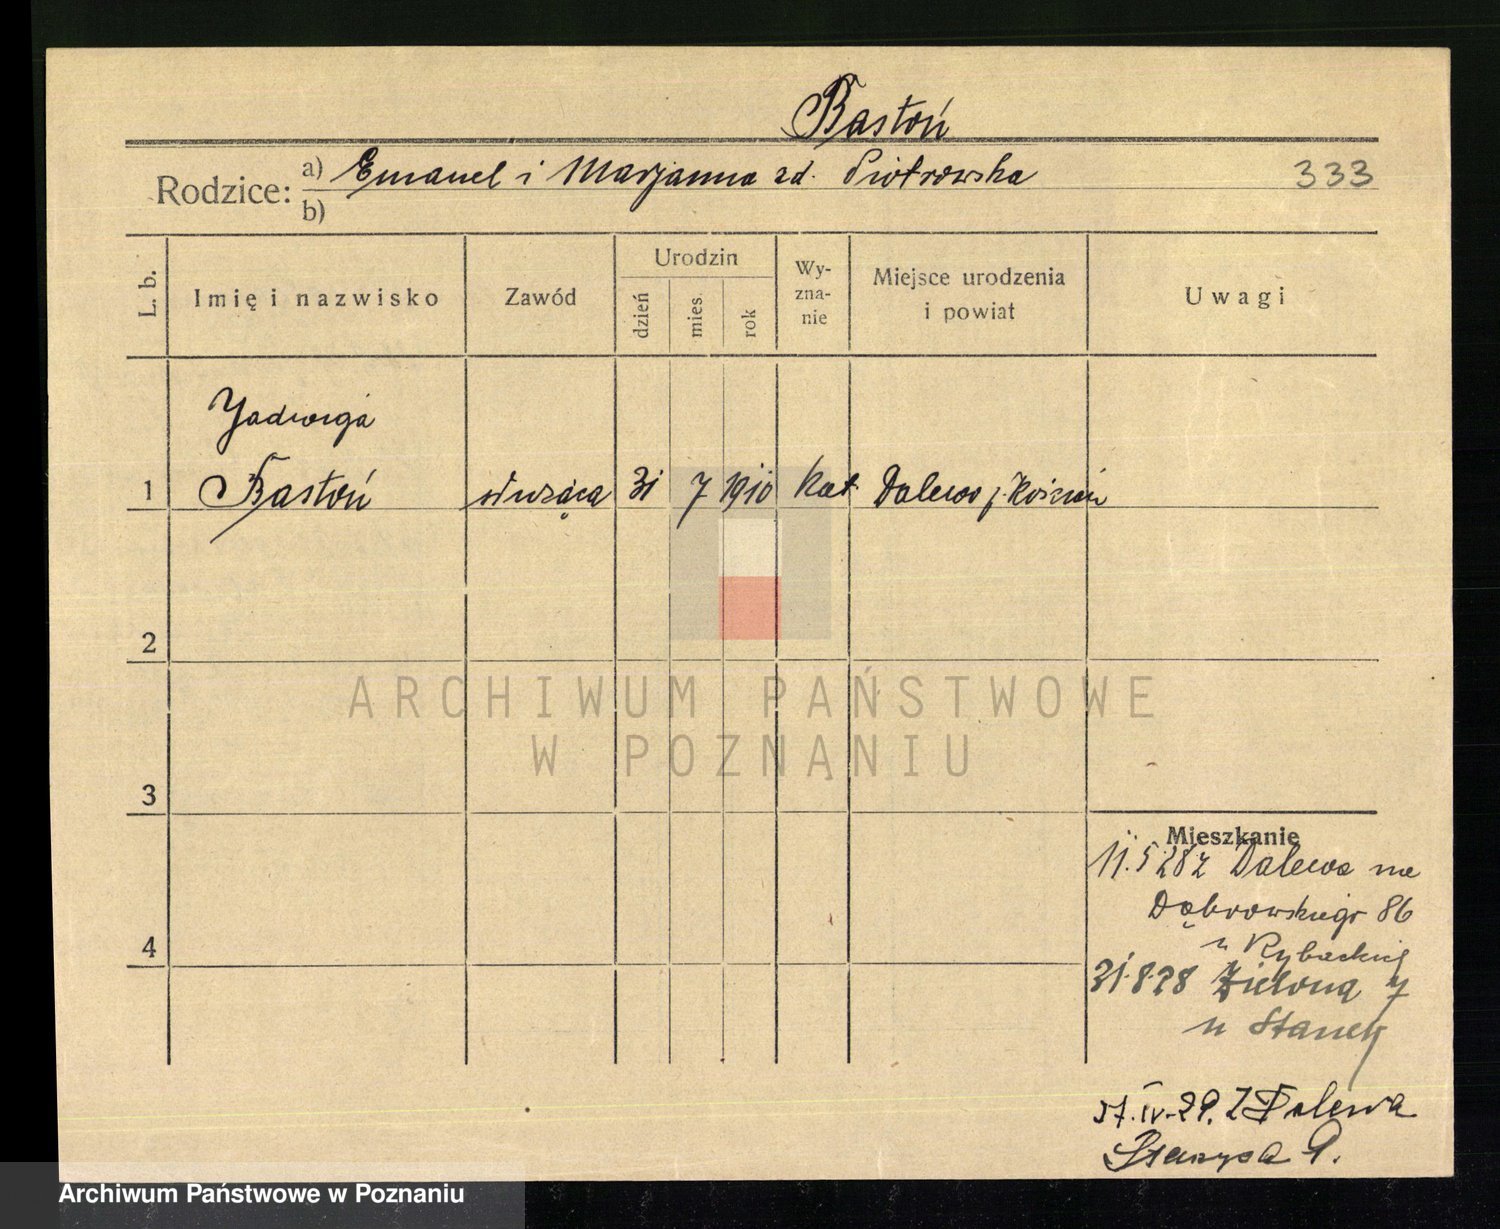 Bastoń
Rodzice: a) Emanuel i Marjanna zd. Piotrowska 333
b)
L. b. Imię i nazwisko Zawód Urodzin dzień mies. rok Wy-zna-nie Miejsce urodzenia i powiat Uwagi
Jadwiga
1 Bastoń służąca 31 7 1910 kat Dalewo p. Kościan
2
ARCHIWUM PAŃSTWOWE
W POZNANIU
3
Mieszkanie
11.5 28 z Dalewa na
Dąbrowskiego 86
u Rybackiej
4
31.8.28 Zieloną 7
u Staney
IV.29. Z Dalewa
Archiwum Państwowe w Poznaniu